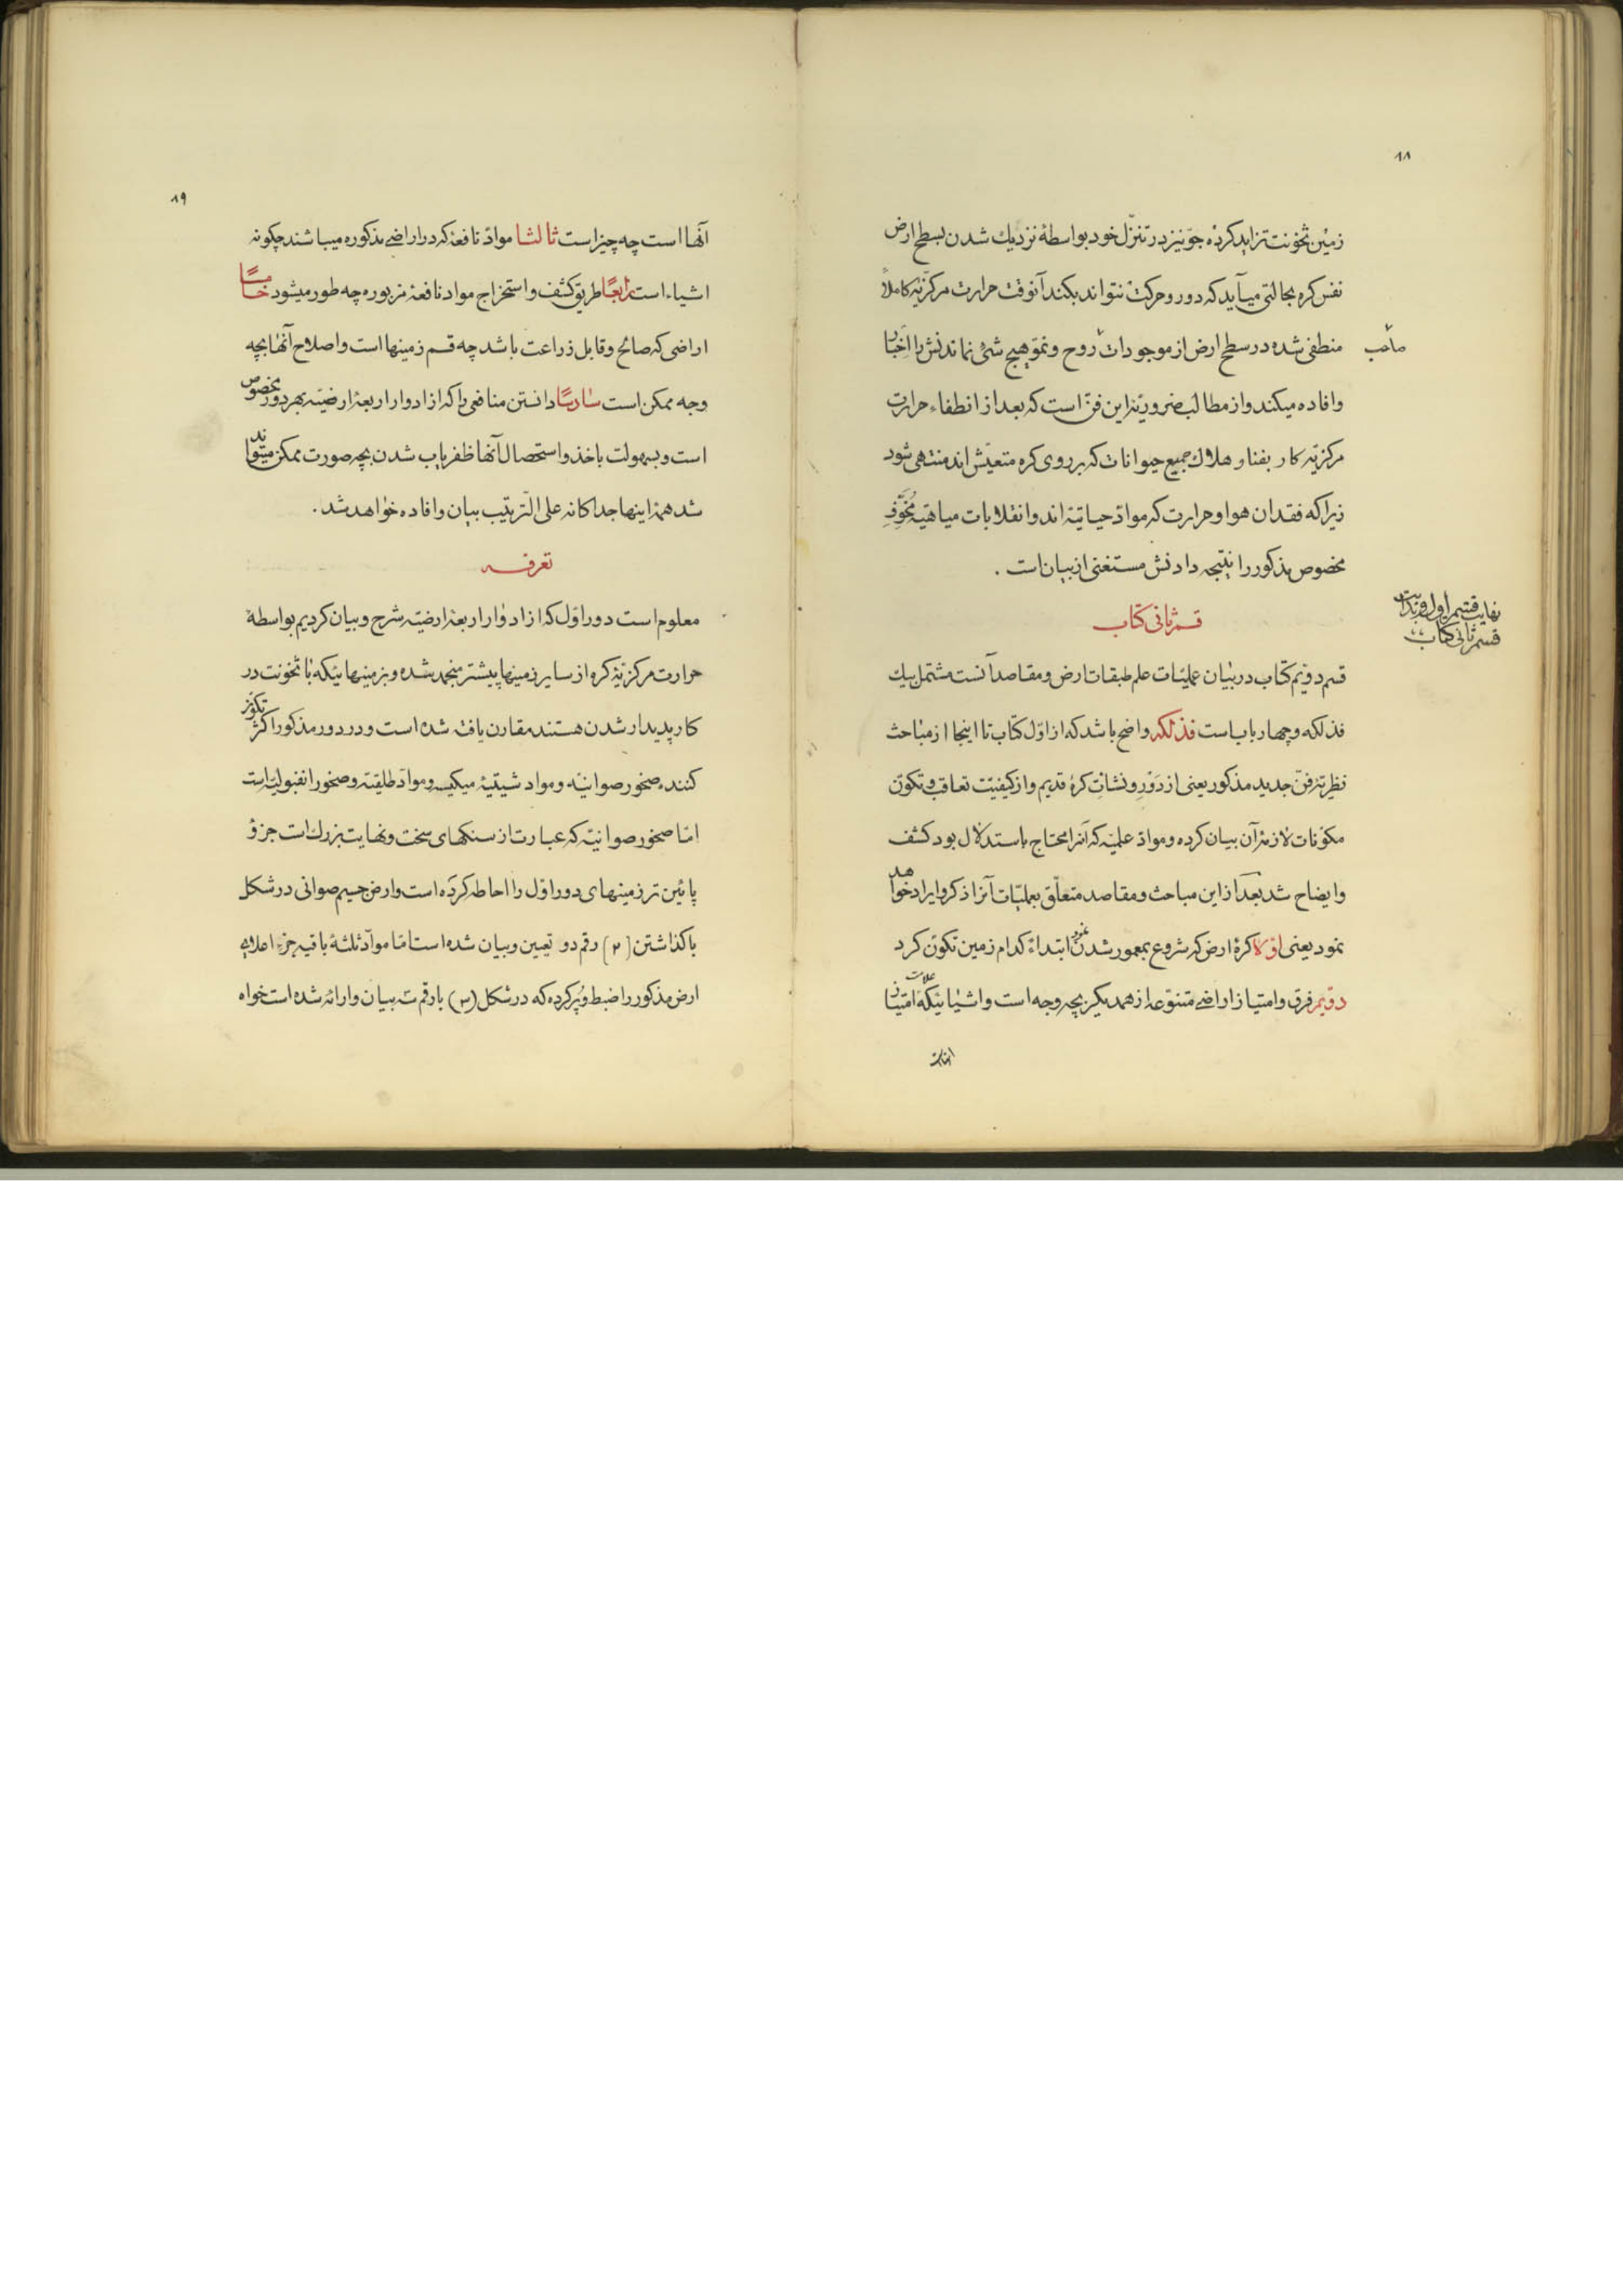 ۸۸
زمین ثخونت تزاید کرده جو نیز در تنزّل خود بواسطهٔ نزدیك شدن بسطح ارض
نفس کره بحالتی میآید که دور و حرکت نتواند بکند آنوقت حرارت مرکزیّه کاملاً
منطفی شده در سطح ارض از موجودات روح و نموّ هیچ شئ نماندنش را اخبار
صاحب
و افاده میکند و از مطالب ضروریّهٔ این فنّ است که بعد از انطفاء حرارت
مرکزیّه کار بفنا و هلاك جمیع حیوانات که بر روی کره متعیّش اند منتهی شود
زیرا که فقدان هوا و حرارت که موادّ حیاتیّه اند و انقلابات میاهیّه مخوّفه
مخصوص مذکور را نتیجه دادنش مستغنی از بیان است .
قسم ثانی کتاب
نهایت قسم اول و بدایت
قسم ثانی کتاب
قسم دویّم کتاب در بیان عملیّات علم طبقات ارض و مقاصد آنست مشتمل بیك
فذلکه و چهار باب است فذلکه واضح باشد که از اوّل کتاب تا اینجا از مباحث
نظریّهٔ فنّ جدید مذکور یعنی از دَوْرِ و نشانِ کرهٔ قدیم و از کیفیّت تعاقب و تکوّن
مکوّنات لازمهٔ آن بیان کرده و موادّ علمیّه که آنرا محتاج باستدلال بود کشف
و ایضاح شد بعد از این مباحث و مقاصد متعلّق بعملیّات آنرا ذکر و ایراد خواهد
نمود یعنی اوّلا کرهٔ ارض که شروع بمعمور شدن نمود ابتداءً کدام زمین تکوّن کرد
دویّم فرق و امتیاز اراضی متنوّعه از همدیگر بچه وجه است و اشیائیکه علامت امتیاز
۸۹
آنها است چه چیز است ثالثا موادّ نافعهٔ که در اراضی مذکوره میباشند چگونه
اشیاء است رابعًا طریق کشف و استخراج مواد نافعهٔ مزبوره چه طور میشود خامسًا
اراضی که صالح و قابل ذراعت باشد چه قسم زمینها است و اصلاح آنها بچه
وجه ممکن است سادسًا دانستن منافعی را که از ادوار اربعهٔ ارضیّه بهر دور مخصوص
است و بسهولت باخذ و استحصال آنها ظفریاب شدن بچه صورت ممکن میتواند
شد همهٔ اینها جداکانه علی التّرتیب بیان و افاده خواهد شد .
تعرفه
معلوم است دور اوّل که از ادوار اربعهٔ ارضیّه شرح و بیان کردیم بواسطهٔ
حرارت مرکزیّهٔ کره از سایر زمینها پیشتر منجمد شده و بزمینهائیکه با ثخونت در
کار پدیدار شدن هستند مقارن یافت شده است و در دور مذکور اکثر تکوّن
کننده صخور صوانیّه و مواد شیتیّهٔ میکیسه و موادّ طلقیّه و صخور انفبولیّه است
امّا صخور صوانیّه که عبارت از سنکهای سخت و نهایت بزرك است جزؤ
پائین تر زمینهای دور اوّل را احاطه کرده است و ارض جسیم صوانی در شکل
با کذاشتن (۲) رقم دو تعیین و بیان شده است امّا موادّ ثلثهٔ باقیه جزء اعلای
ارض مذکور را ضبط و پُر کرده که در شکل (۳) با رقم سه بیان و ارائه شده است خواه